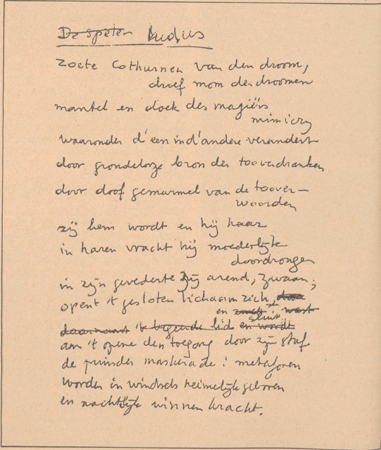 De speler Ludius
Zoete Cothurnen van den droom,
droef mom der droomen
mantel en doek des magiërs
mimicry
waaronder d'een ind'andere verandert
door grondeloze bron der tooverdranken
door doof gemurmel van de toover-
woorden
zij hem wordt en hij haar
in haren vracht hij moederlijke
doordrongen
in zijn gevederte zij arend, zwaan;
opent 't gesloten lichaam zich,
en sluit
daarnaast 't begeerde lid en wordt
aan 't opene den toegang door zijn staf
de maskerade: metaforen
worden in windsels heimelijk geboren
en nachtlijk winnen kracht.